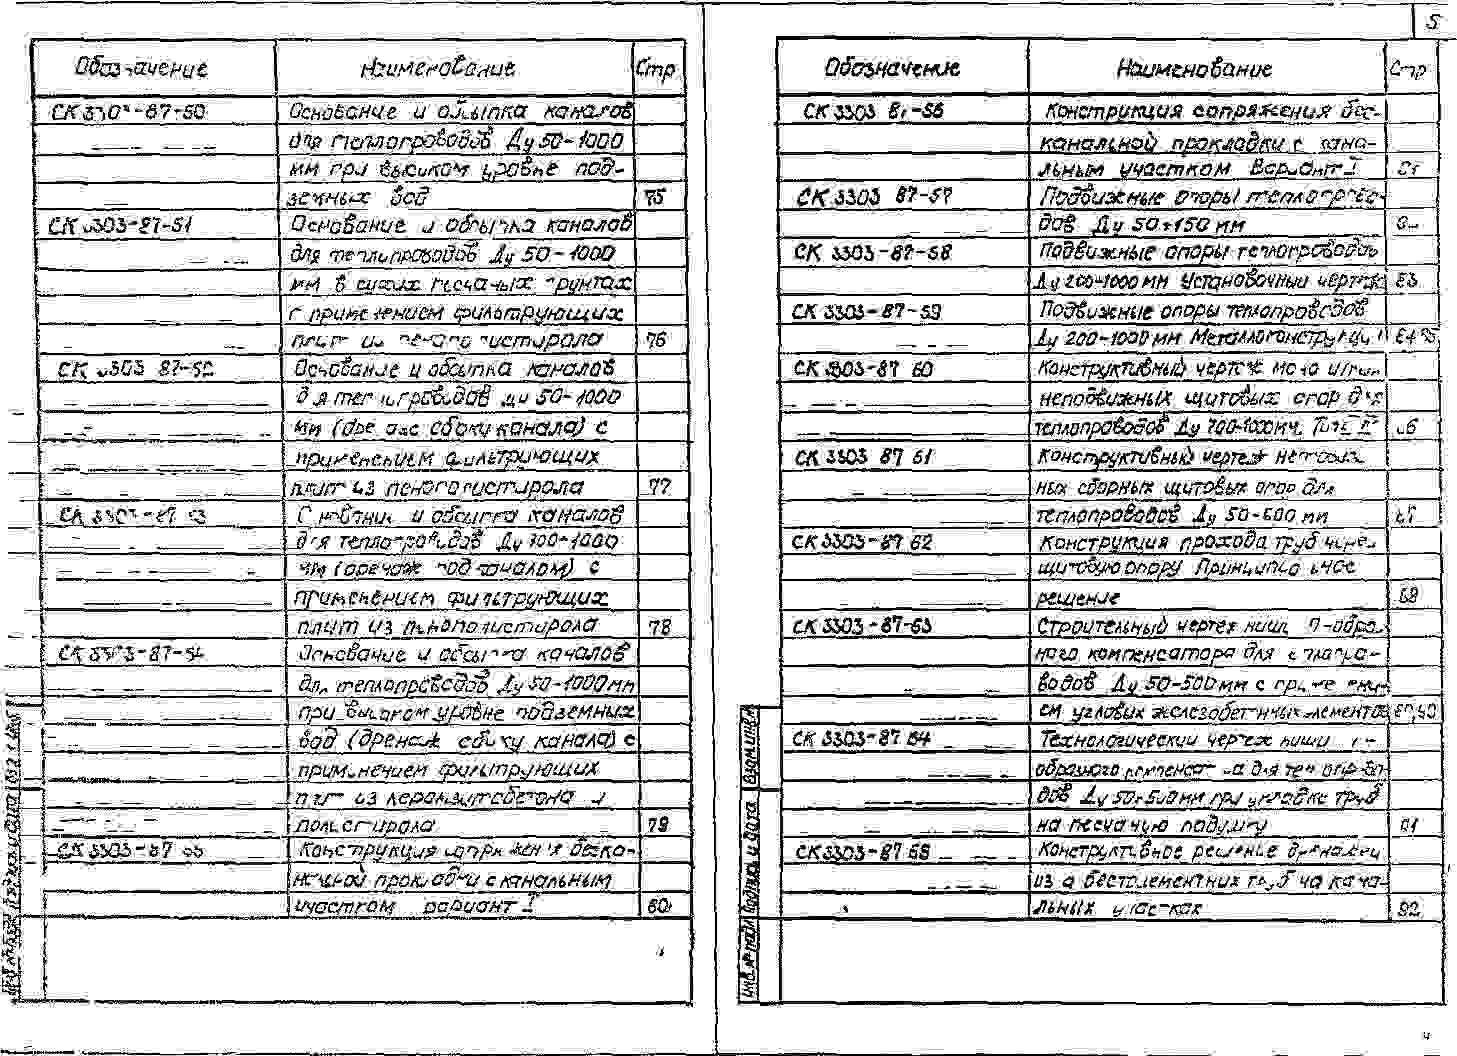 5
Обозначение Наименование Стр
СК 3303-87-50 Основание и обсыпка каналов
для теплопроводов Ду 50-1000
мм при высоком уровне под-
земных вод 75
СК 3303-87-51 Основание и обсыпка каналов
для теплопроводов Ду 50-1000
мм в сухих песчаных грунтах
с применением фильтрующих
плит из пенополистирола 76
СК 3303 87-52 Основание и обсыпка каналов
для теплопроводов Ду 50-1000
мм ( сбоку канала) с
применением фильтрующих
плит из пенополистирола 77
СК 3303-87 53 Основание и обсыпка каналов
для теплопроводов Ду 300-1000
мм (дренаж под каналом) с
применением фильтрующих
плит из пенополистирола 78
СК 3303-87-54 Основание и обсыпка каналов
для теплопроводов Ду 50-1000мм
при высоком уровне подземных
вод (дренаж сбоку канала) с
применением фильтрующих
плит из керамзитобетона и
полистирола 79
СК 3303-87 55 Конструкция сопряжения беска-
нальной прокладки с канальным
участком вариант I 80
Обозначение Наименование Стр
СК 3303 87-56 Конструкция сопряжения бес-
канальной прокладки с кана-
льным участком Вариант I 81
СК 3303 87-57 Подвижные опоры теплопрово-
дов Ду 50÷150 мм
СК 3303-87-58 Подвижные опоры теплопроводов
Ду 200-1000 мм Установочный чертеж 83
СК 3303-87-59 Подвижные опоры теплопроводов
Ду 200-1000 мм Металлоконструкции 84,85
СК 3303-87 60 Конструктивный чертеж
неподвижных щитовых опор для
теплопроводов Ду 700-1000мм. 86
СК 3303 87 61 Конструктивный чертеж неподвиж-
ных сборных щитовых опор для
теплопроводов Ду 50-600 мм 87
СК 3303-87 62 Конструкция прохода труб через
щитовую опору Принципиальное
решение 88
СК 3303-87-63 Строительный чертеж ниши П-образ-
ного компенсатора для теплопро-
водов Ду 50-500мм с применени-
ем угловых железобетонных элементов 89,90
СК 3303-87 64 Технологический чертеж ниши П-
образного компенсатора для теплопрово-
дов Ду 50÷500мм при укладке труб
на песчаную подушку 91
СК 3303-87 65 Конструктивное решение дренажей
из асбестоцементных труб на кана-
льных участках 92
Инв.№ подл Подпись и дата Взам инв №
Инв.№ подл Подпись и дата Взам инв №
4